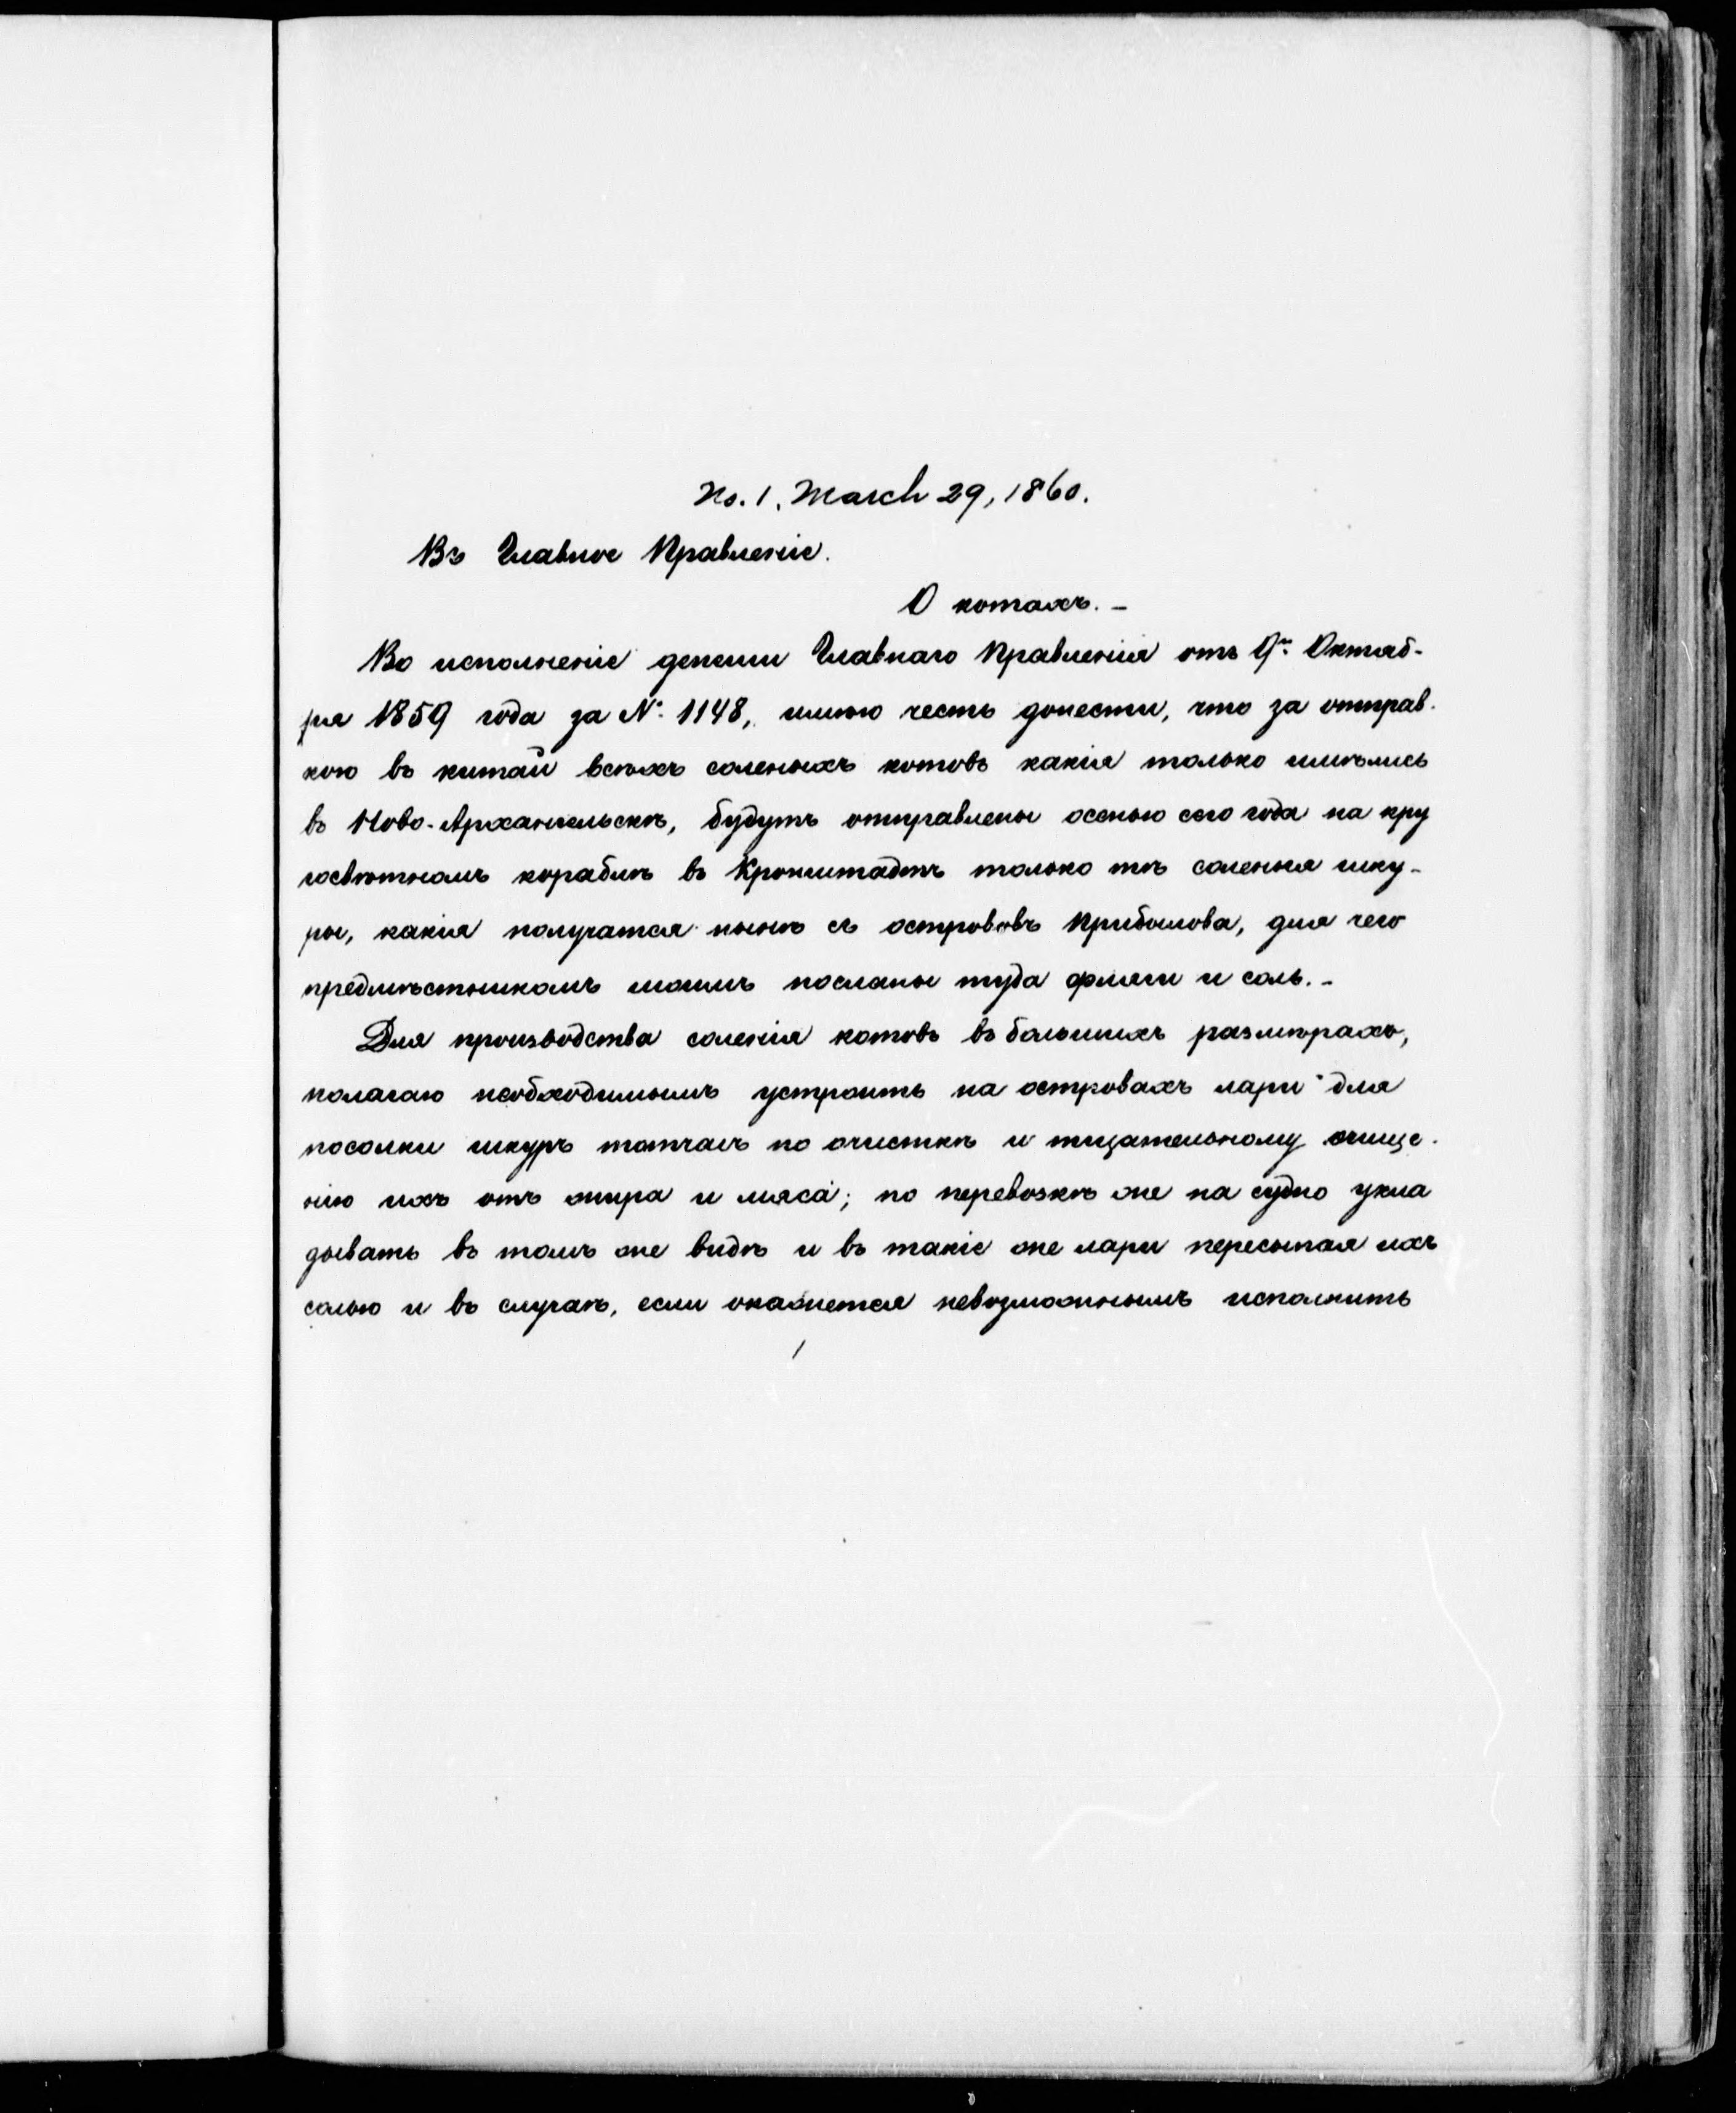 No. 1. March 29, 1860.
Въ Главное Правленіе.
О котахъ. –
Во исполненіе депеши Главнаго Правленія отъ 9го Октяб-
ря 1859 года за №. 1148, имѣю честь донести, что за отправ-
кою въ китай всѣхъ соленыхъ котовъ какія только имѣлись
въ Ново-Архангельскѣ, будутъ отправлены осенью сего года на кру
госвѣтномъ кораблѣ въ Кронштадтъ только тѣ соленыя шку-
ры, какія получатся нынѣ съ острововъ Прибылова, для чего
предмѣстникомъ моимъ посланы туда фляги и соль. –
Для производства соленія котовъ въ большихъ размѣрахъ,
полагаю необходимымъ устроить на островахъ лари для
посолки шкуръ тотчасъ по очисткѣ и тщательному очище-
нію ихъ отъ жира и мяса; по перевозкѣ же на судно укла
дывать въ томъ же видѣ и въ такіе же лари пересыпая ихъ
солью и въ случаѣ, если окажется невозможнымъ исполнить
1